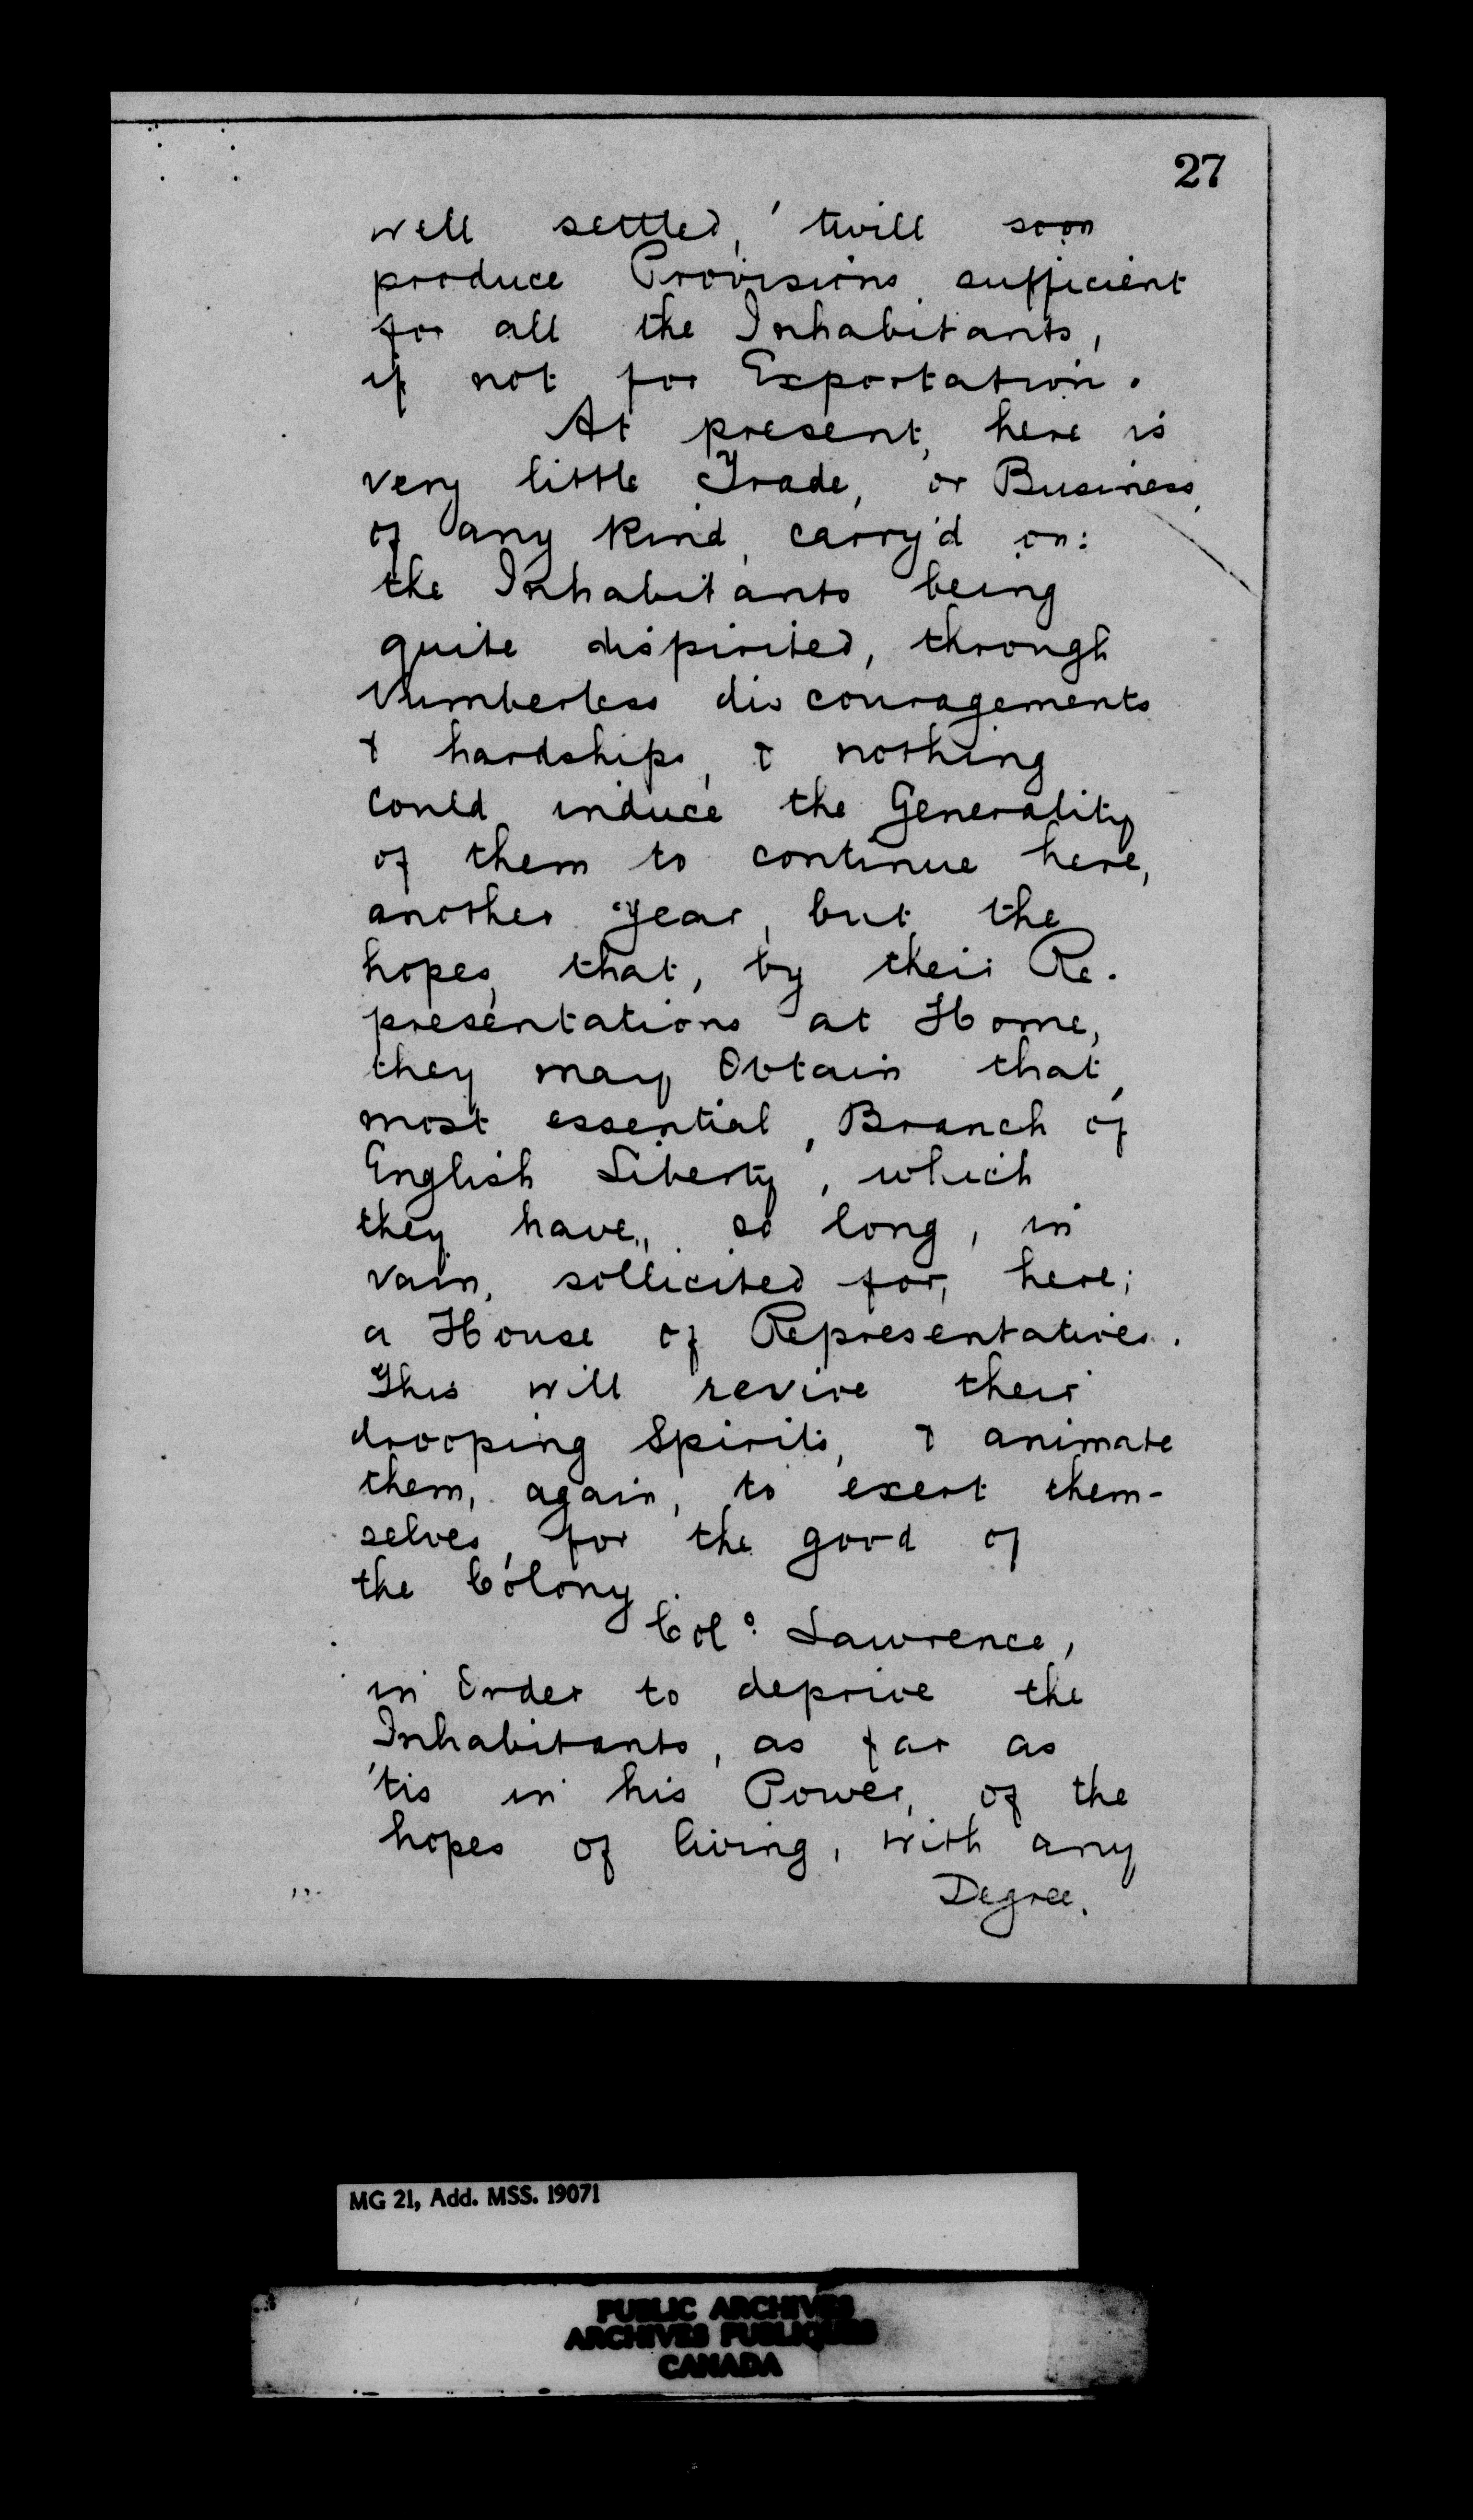 27
well settled, 'twill soon
produce Provisions sufficient
for all the Inhabitants,
if not for Exportation.
At present, here is
very little Trade, or Business,
of any kind, carry'd on:
the Inhabitants being
quite dispirited, through
Numberless discouragements
& hardships, & nothing
could induce the Generality
of them to continue here,
another year, but the
hopes, that, by their Re-
presentations at Home,
they may Obtain that,
most essential, Branch of
English Liberty, which
they have, so long, in
vain, sollicited for, here;
a House of Representatives.
This will revive their
drooping Spirits, & animate
them, again, to exert them-
selves, for the good of
the Colony.
Colº. Lawrence,
in Order to deprive the
Inhabitants, as far as
'tis in his Power, of the
hopes of living, with any
Degree.
MG 21, Add. MSS. 19071
PUBLIC ARCHIVES
ARCHIVES PUBLIQUES
CANADA